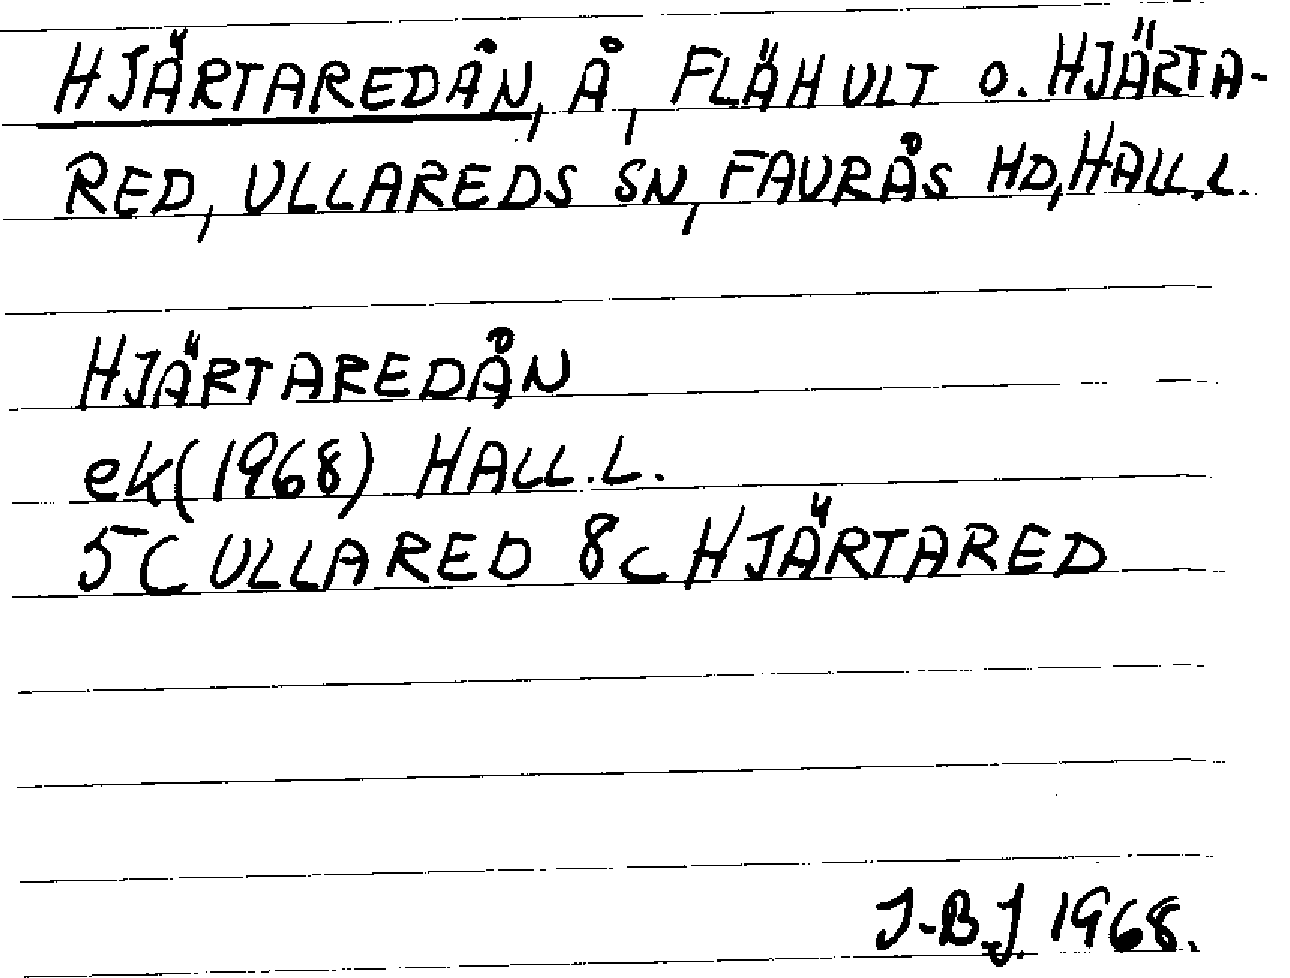 HJÄRTAREDÅN, Å, FLÄHULT O. HJÄRTA-
RED, ULLAREDS SN, FAURÅS HD, HALL.L.
HJÄRTAREDÅN
ek (1968) HALL.L.
5C ULLARED 8c HJÄRTARED
J-B.J. 1968.